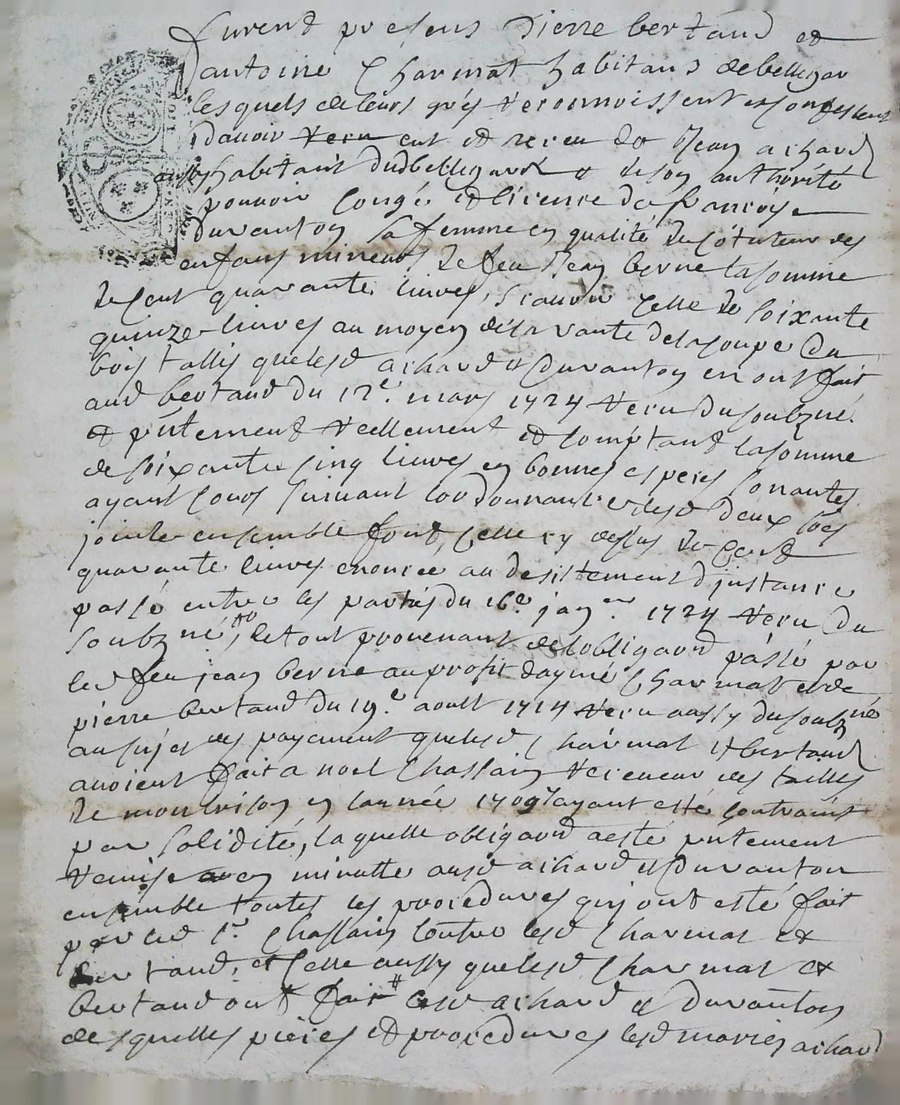 furend presens pierre bertand et
antoine Charmat habitans de bellegar
lesquels de leurs grés reconnoissent et confessent
davoir receu eut et receu de Jean achard
aussy habitant dud bellegard et de son authorité
pouvoir congé et licence de francoyse
duvanton sa femme en qualité de cotuteur des
enfans mineurs de feu Jean berne la somme
de cent quarante livres, scauoir celle de soixante
quinze livres au moyen de la vante de la coupe du
bois tallis que lesd achard et duvanton en ont fait
aud bertand du 12e. mars 1724 receu du soubzné
et pntement reellement et comptant la somme
de soixante cinq livres en bonnes especes sonantes
ayant cours suivant lordonnance lesd deux
jointe ensemble font celle cy desus de cent
quarante livres enoncee au desistement djnstance
passé entre les parties du 16e janer 1724 receu du
soubzné, le tout provenant de lobligaon passé par
led feu jean berne au profit daymé Charmat et de
pierre bertand du 19e. aoult 1714 receu aussy du soubzné
au sujet des payement que lesd Charmat et bertand
avoient fait a noel Chassain receveur des tailles
de montbrison en lannée 1709 ayant esté contraint
par solidité, laquelle obligaon a esté pntement
remise en minutte ausd achard et duvanton
ensemble toutes les procedures qui ont esté fait
par led sr. Chassain contre lesd Charmat et
bertand, et celle aussy que lesd Charmat et
bertand ont fait c lesd achard et duvanton
desquelles pieces et procedures lesd mariés achard